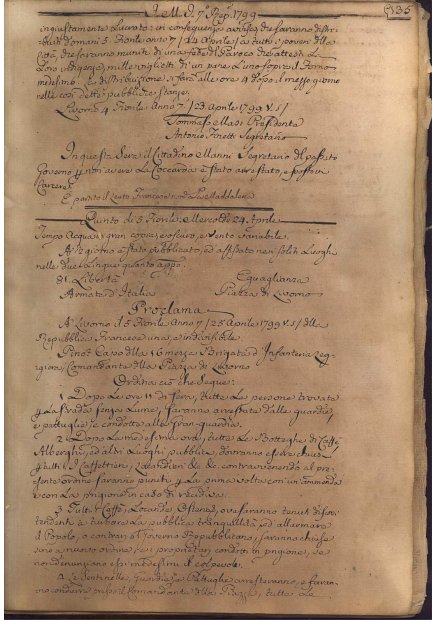 J. M. J. 7.° Rep.° 1799
535
ingiustamente lucrato: in conseguenza avvisa, che saranno distri-
buiti domani 5 Fiorile anno 7 / 24 Aprile / a tutti i poveri della
Città, che saranno muniti di una fede del Paroco che attesti la
Loro indigenza, mille viglietti di un pane l'uno sopra il Forno
medesimo. La distribuzione si farà alle ore 4 dopo il mezzo giorno
nelle con dette pubbliche stanze.
Livorno 4 Fiorile Anno 7 / 23 Aprile 1799 V. S /
Tommaso Masi Presidente
Antonio Finetti Segretario
In questa Sera il Cittadino Manni Segretario del passato
Governo per non avere la Coccarda è stato arrestato, e posto in
Carcere.
È partito il Lento Francese per La Maddalena
Quinto dì 5 Fiorile: Mercoledì 24 Aprile
Tempo acqua gran copia, e oscuro, e vento variabile.
A giorno è stato pubblicato, ed affisso nei soliti Luoghi
nelle due Lingue quanto appo.
81. Libertà Eguaglianza
Armata d'Italia Piazza di Livorno
Proclama
A Livorno il 5 Fiorile Anno 7 / 25 Aprile 1799 V. S / della
Repubblica Francese una, e indivisibile.
Pinot Capo della 16 mezza Brigata d'Infanteria Leg-
giera, Comandante della Piazza di Livorno
Ordina ciò che segue:
1. Dopo le ore 11 di sera, tutte le persone trovate
per la strada senza Lume, saranno arrestate dalle guardie,
e pattuglie, e condotte alla Gran-guardia.
2. Dopo la medesima ora, tutte le Botteghe di Caffè,
Alberghi, ed altri Luoghi pubblici dovranno essere chiusi,
per tutti i Caffettieri, Locandieri &c. &c. contravenendo al pre-
sente ordine saranno puniti per la prima volta con un'ammenda
e con la prigione in caso di recidiva.
3. Tutti i Caffè, Locande, Osterie, ove saranno tenuti discorsi
tendenti a turbare la pubblica tranquillità, ed allarmare
il Popolo, o contrari al Governo Repubblicano, saranno chiuse
sino a nuovo ordine, e i proprietari condotti in prigione, se
non denunziano essi medesimi il colpevole.
4. Le Sentinelle, Guardie, e Pattuglie arresteranno, e faran-
no condurre dal Comandante della Piazza, tutte le